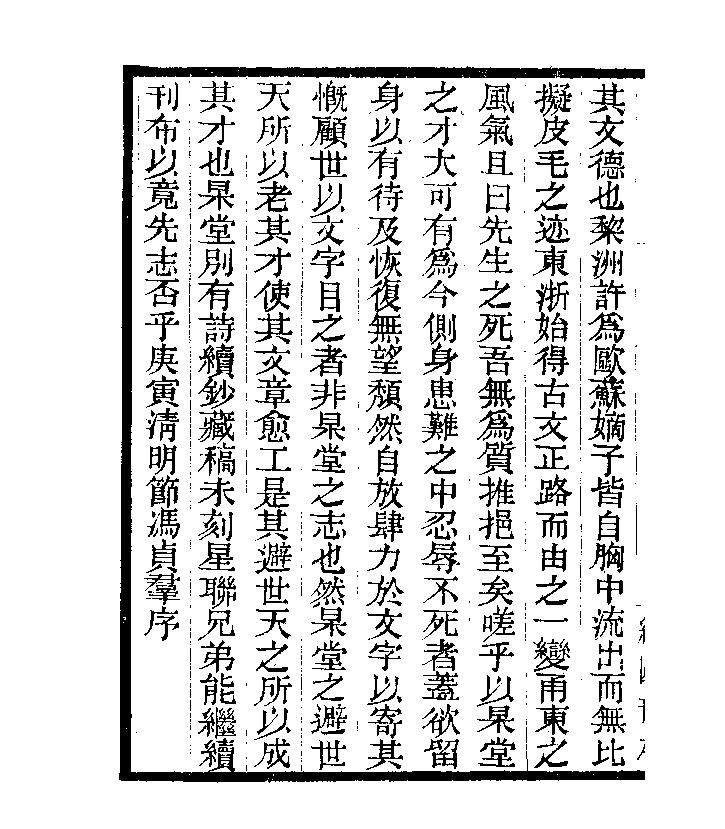 其文德也黎洲許爲歐蘇嫡子皆自胸中流出而無比
擬皮毛之迹東浙始得古文正路而由之一變甬東之
風氣且曰先生之死吾無爲質推挹至矣嗟乎以杲堂
之才大可有爲今側身患難之中忍辱不死者蓋欲留
身以有待及恢復無望頹然自放肆力於文字以寄其
慨顧世以文字目之者非杲堂之志也然杲堂之避世
天所以老其才使其文章愈工是其避世天之所以成
其才也杲堂別有詩續鈔藏稿未刻星聯兄弟能繼續
刊布以竟先志否乎庚寅淸明節馮貞羣序